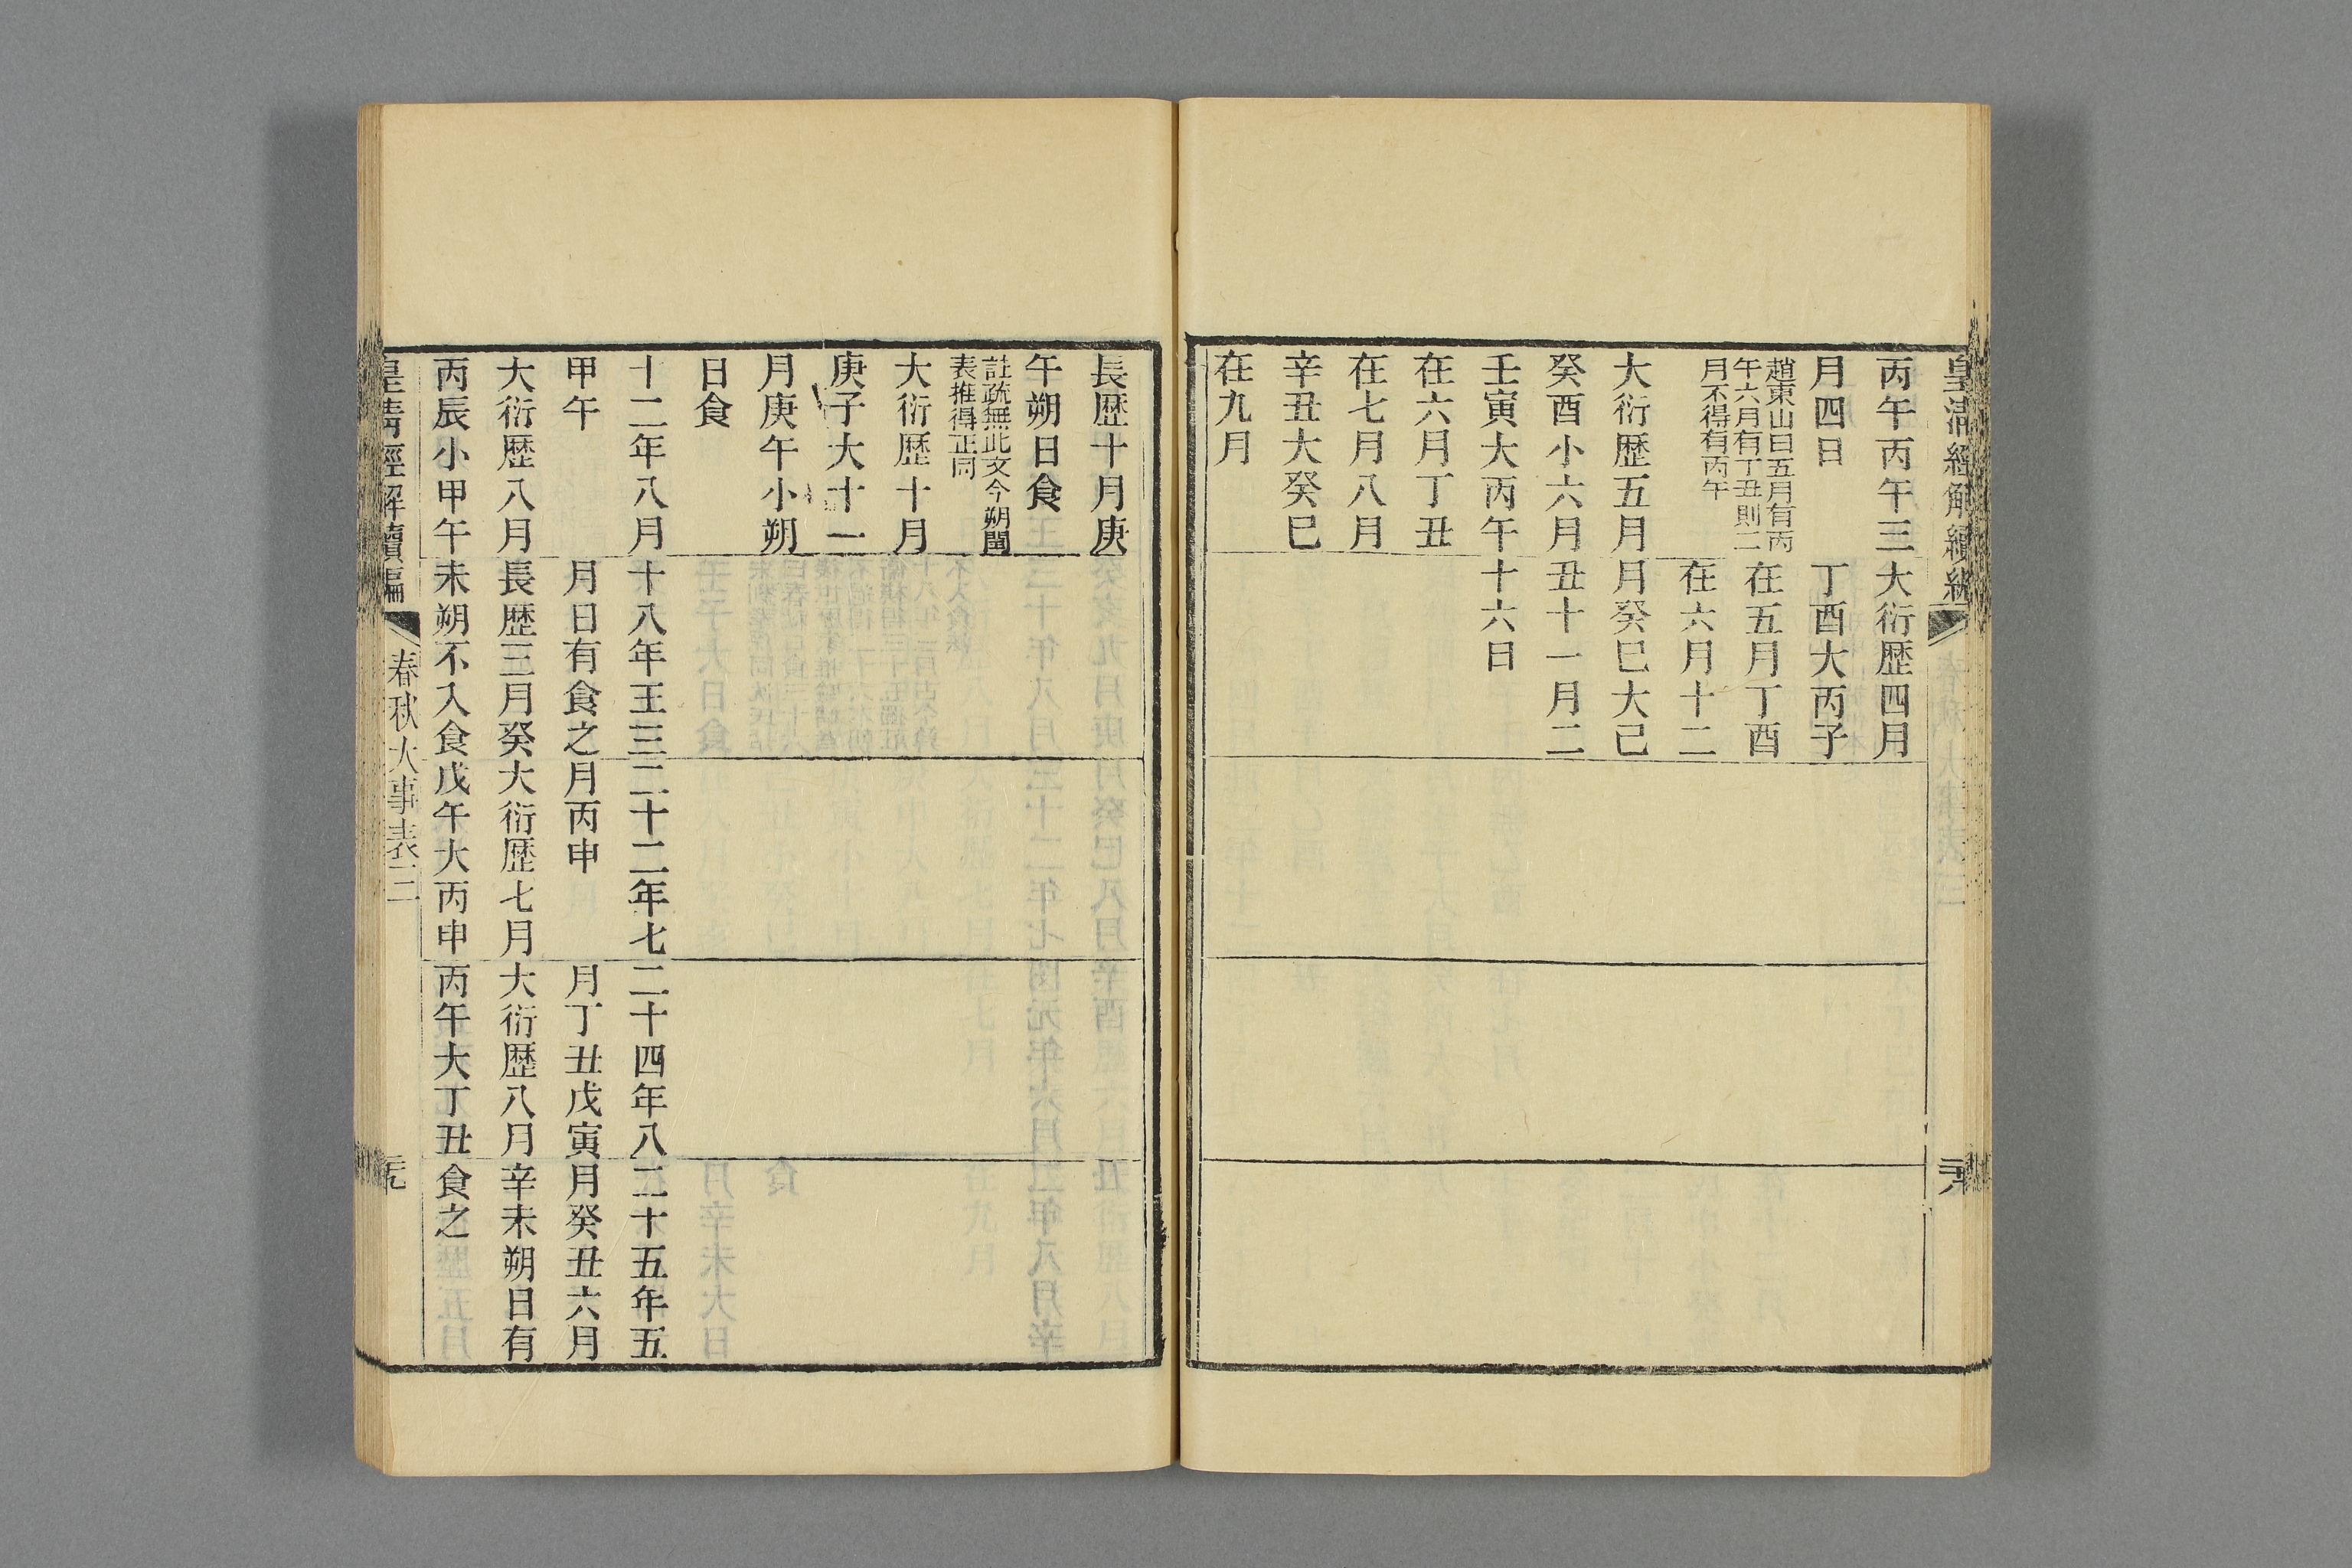 皇清經解續編
丙午丙午三
月四日
趙東山曰五月有丙
午六月有丁丑則二
月不得有丙午
大衍歷五月
癸酉小六月
壬寅大丙午
在六月丁丑
在七月八月
辛丑大癸巳
在九月
大衍歷四月
丁酉大丙子
在五月丁酉
在六月十二
月癸巳大己
丑十一月二
十六日
長歷十月庚
午朔日食
註疏無此文今朔閏
表推得正同
大衍歷十月
庚子大十一
月庚午小朔
日食
十二年八月
甲午
大衍歷八月
丙辰小甲午
十八年王三
月日有食之
長歷三月癸
未朔不入食
二十二年七
月丙申
大衍歷七月
戊午大丙申
二十四年八
月丁丑戊寅
大衍歷八月
丙午大丁丑
二十五年五
月癸丑六月
辛未朔日有
食之
皇清經解續編
春秋大事表三